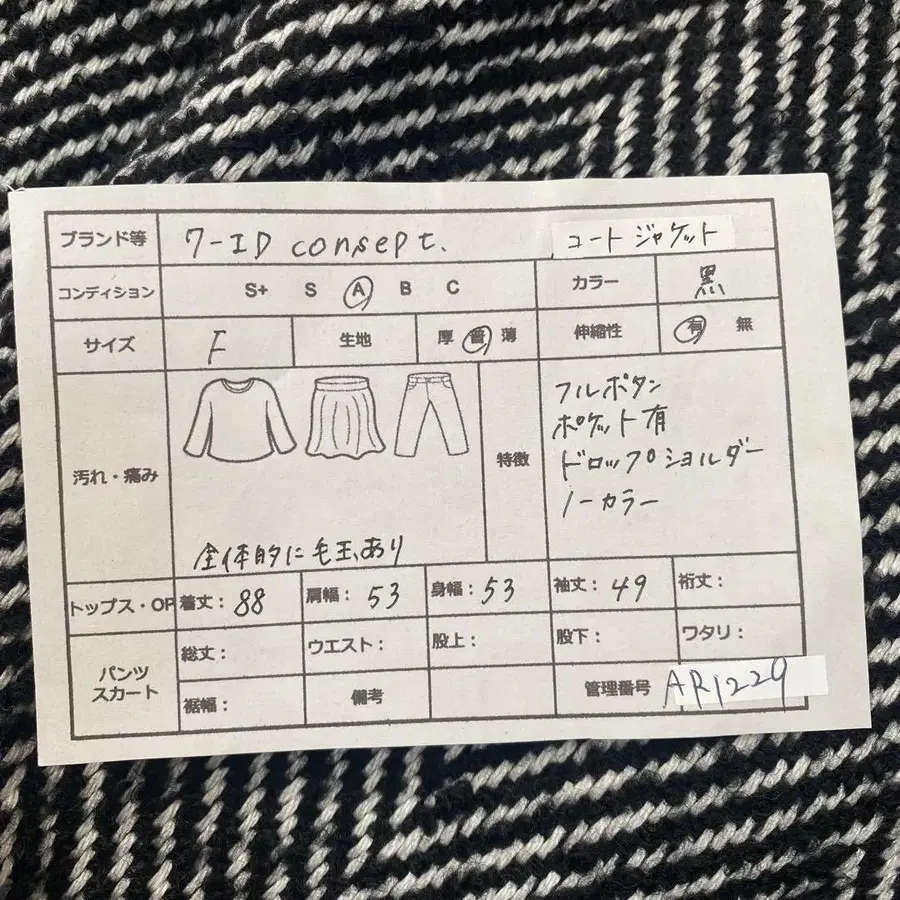 ブランド等 7-ID consept. コート ジャケット
コンディション S+ S A B C カラー 黒
サイズ F 生地 厚 普 薄 伸縮性 有 無
汚れ・痛み 全体的に毛玉あり
特徴 フルボタン
ポケット有
ドロップショルダー
ノーカラー
トップス・OP 着丈:88 肩幅:53 身幅:53 袖丈:49 裄丈:
パンツ
スカート
総丈: ウエスト: 股上: 股下: ワタリ:
裾幅: 備考 管理番号 AR1229